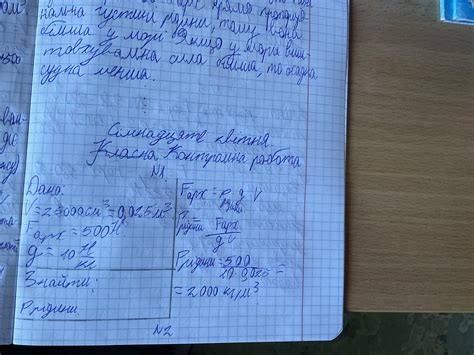 нальна густині рідини, тому вона
більша у морі. Якщо у морі виш
товхувальна сила більша, то осадка
судна менша.
Сімнадцяте квітня
Класна Контрольна робота
№1
Дано:
V = 25000см³ = 0,025м³
Fарх = 500Н
g = 10 Н/кг
Знайти:
ρ рідини
Fарх = ρ рідини g V
ρ рідини = Fарх / g V
ρ рідини = 500 / 10·0,025 =
= 2000 кг/м³
№2